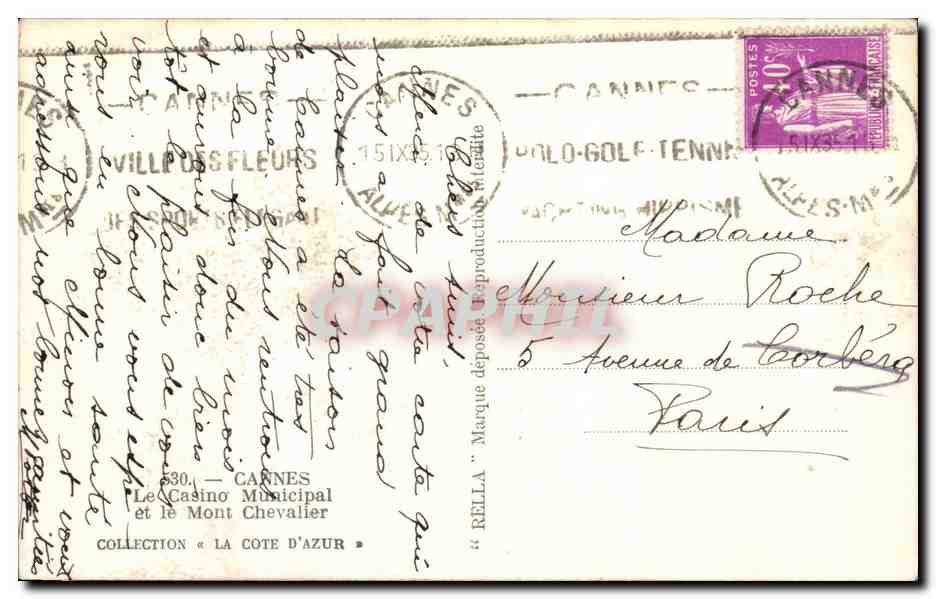 Chers amis,
Merci de votre carte qui
nous a fait grand
plaisir. La saison
de Cannes a été très
bonne. Nous rentrons
à la fin du mois
et aurons donc bien-
tôt le plaisir de vous
voir. Nous vous espé
rons en bonne santé
ainsi que Mimos et vous
adressons nos bonnes amitiés
CANNES
VILLE DES FLEURS
DES SPORTS ELEGANTS
CANNES
15 IX 35
ALPES-Mmes
CANNES
POLO-GOLF-TENNIS
YACHTING HIPPISME
CANNES
15 IX 35
ALPES-Mmes
POSTES
40c
REPUBLIQUE FRANÇAISE
Madame
Monsieur Roche
5 Avenue de Corbéra
Paris
530. — CANNES
Le Casino Municipal
et le Mont Chevalier
COLLECTION « LA COTE D'AZUR »
" RELLA " Marque déposée Reproduction Interdite
CPAPHIL